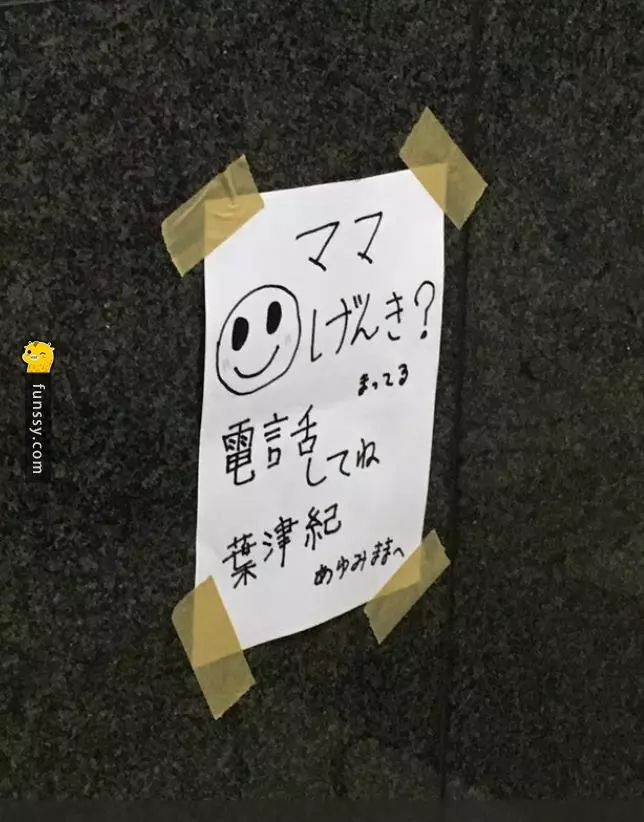 ママ
げんき?
まってる
電話してね
葉津紀
あゆみままへ
funssy.com